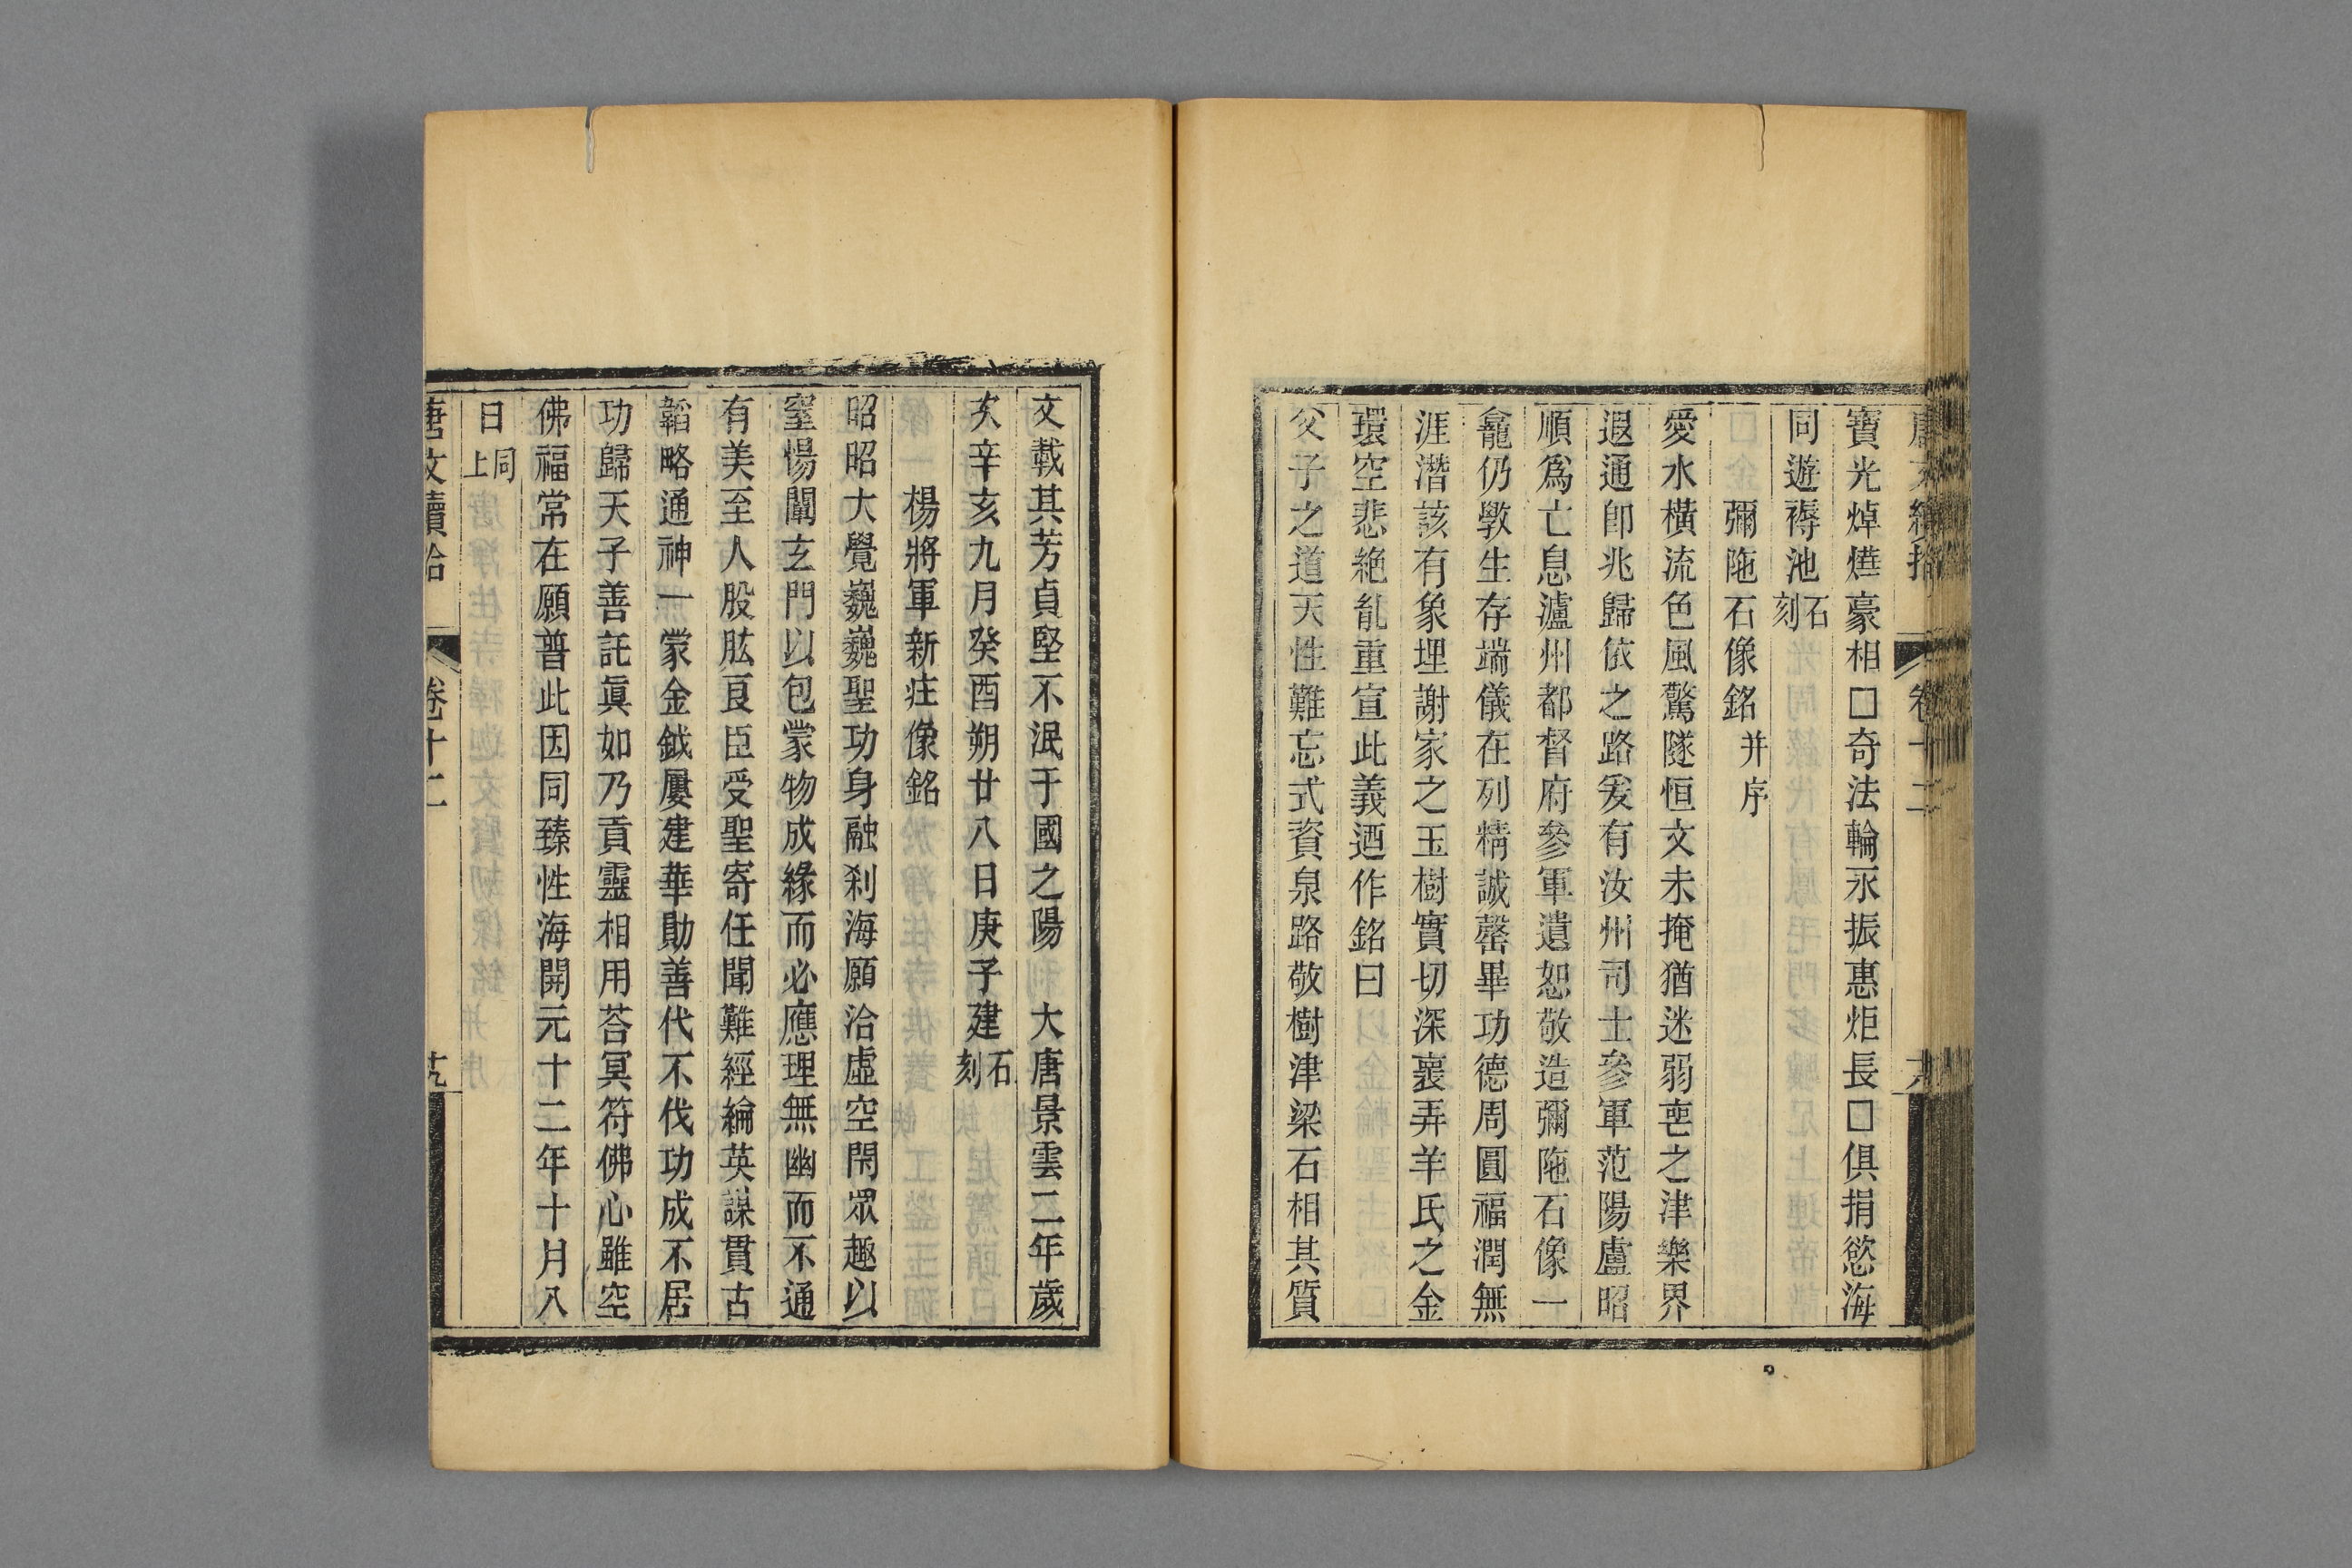 寶光焯㷸豪相□奇法輪永振惠炬長□俱捐慾海
同遊蓐池石刻
彌陁石像銘并序
愛水橫流色風驚隧恒文未掩猶迷弱喪之津樂界
遐通卽兆歸依之路爰有汝州司士參軍范陽盧昭
順爲亡息瀘州都督府參軍遺恕敬造彌陁石像一
龕仍斅生存端儀在列精誠罄畢功德周圓福潤無
涯潛該有象埋謝家之玉樹實切深裏弄羊氏之金
環空悲絶亂重宣此義迺作銘曰
父子之道天性難忘式資泉路敬樹津梁石相其質
文載其芳貞堅不泯于國之陽　大唐景雲二年歲
次辛亥九月癸酉朔廿八日庚子建石刻
楊將軍新疰像銘
昭昭大覺巍巍聖功身融刹海願洽虛空閑眾趣以
窒愓闡玄門以包蒙物成緣而必應理無幽而不通
有美至人股肱良臣受聖寄任聞難經綸英謀貫古
韜略通神一蒙金鉞屢建華勛善代不伐功成不居
功歸天子善託眞如乃貢靈相用荅冥符佛心雖空
佛福常在願普此因同臻性海開元十二年十月八
日同上
唐文續拾　卷十二